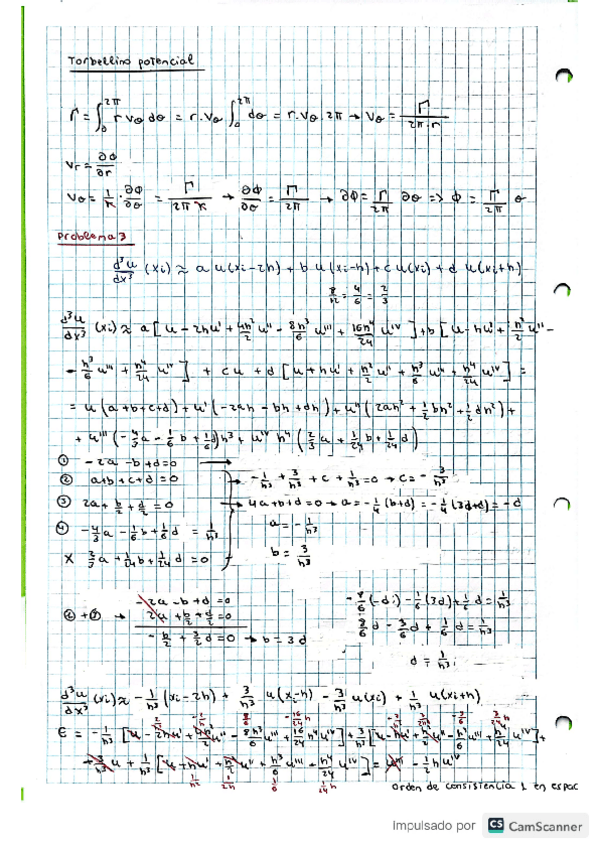 Torbellino potencial
Γ = ∫₀^2π r vθ dθ = r · vθ ∫₀^2π dθ = r · vθ · 2π → vθ = Γ / 2π·r
vr = ∂ϕ/∂r
vθ = 1/r · ∂ϕ/∂θ = Γ / 2π r → ∂ϕ/∂θ = Γ/2π → ∂ϕ = Γ/2π ∂θ => ϕ = Γ/2π θ
Problema 3
d³u/dx³ (xi) ≈ a u(xi-2h) + b u(xi-h) + c u(xi) + d u(xi+h)
8/12 = 4/6 = 2/3
d³u/dx³ (xi) ≈ a [u - 2hu' + 4h²/2 u'' - 8h³/6 u''' + 16h⁴/24 u^IV] + b [u - hu' + h²/2 u'' -
- h³/6 u''' + h⁴/24 u^IV] + cu + d [u + hu' + h²/2 u'' + h³/6 u''' + h⁴/24 u^IV] =
= u (a+b+c+d) + u' (-2ah - bh + dh) + u'' (2ah² + 1/2 bh² + 1/2 dh²) +
+ u''' (-4/3 a - 1/6 b + 1/6 d) h³ + u^IV h⁴ (2/3 a + 1/24 b + 1/24 d)
① -2a - b + d = 0
② a+b+c+d = 0 → -1/h³ + 3/h³ + c + 1/h³ = 0 → c = -3/h³
③ 2a + b/2 + d/2 = 0 → 4a+b+d = 0 → a = -1/4 (b+d) = -1/4 (3d+d) = -d
④ -4/3 a - 1/6 b + 1/6 d = 1/h³ a = -1/h³
X 2/3 a + 1/24 b + 1/24 d = 0 b = 3/h³
-2a - b + d = 0
2a + b/2 + d/2 = 0
- b/2 + 3/2 d = 0 → b = 3d
-8/6 (-d) - 1/6 (3d) + 1/6 d = 1/h³
8/6 d - 3/6 d + 1/6 d = 1/h³
d = 1/h³
d³u/dx³ (xi) ≈ -1/h³ (xi-2h) + 3/h³ u(xi-h) - 3/h³ u(xi) + 1/h³ u(xi+h)
ε = -1/h³ [u - 2hu' + 4h²/2 u'' - 8h³/6 u''' + 16/24 h⁴ u^IV] + 3/h³ [u - hu' + h²/2 u'' - h³/6 u''' + h⁴/24 u^IV] +
- 3/h³ u + 1/h³ [u + hu' + h²/2 u'' + h³/6 u''' + h⁴/24 u^IV] = u''' - 1/2 h u^IV
orden de consistencia 1 en espac
Impulsado por CS CamScanner